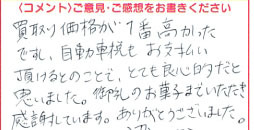 〈コメント〉ご意見・ご感想をお書きください
買取り価格が1番高かった
です。自動車税もお支払い
頂けるとのことで、とても良心的だと
思いました。御礼のお菓子までいただき
感謝しています。ありがとうございました。